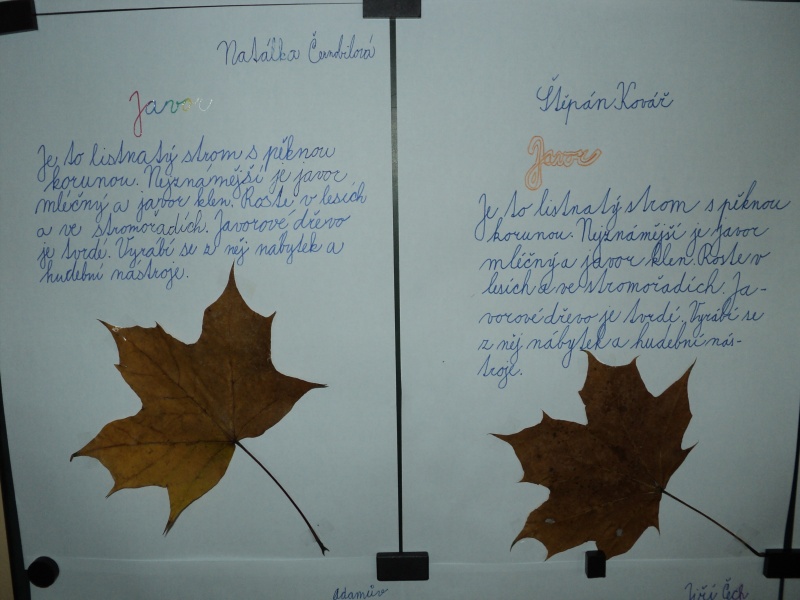 Natálka Černobilová
Javor
Je to listnatý strom s pěknou
korunou. Nejznámější je javor
mléčný a javor klen. Roste v lesích
a ve stromořadích. Javorové dřevo
je tvrdé. Vyrábí se z něj nábytek a
hudební nástroje.
Štěpán Kovář
Javor
Je to listnatý strom s pěknou
korunou. Nejznámější je javor
mléčný a javor klen. Roste v
lesích a ve stromořadích. Ja-
vorové dřevo je tvrdé. Vyrábí se
z něj nábytek a hudební nás-
troje.
Adamův
Jiří Čech